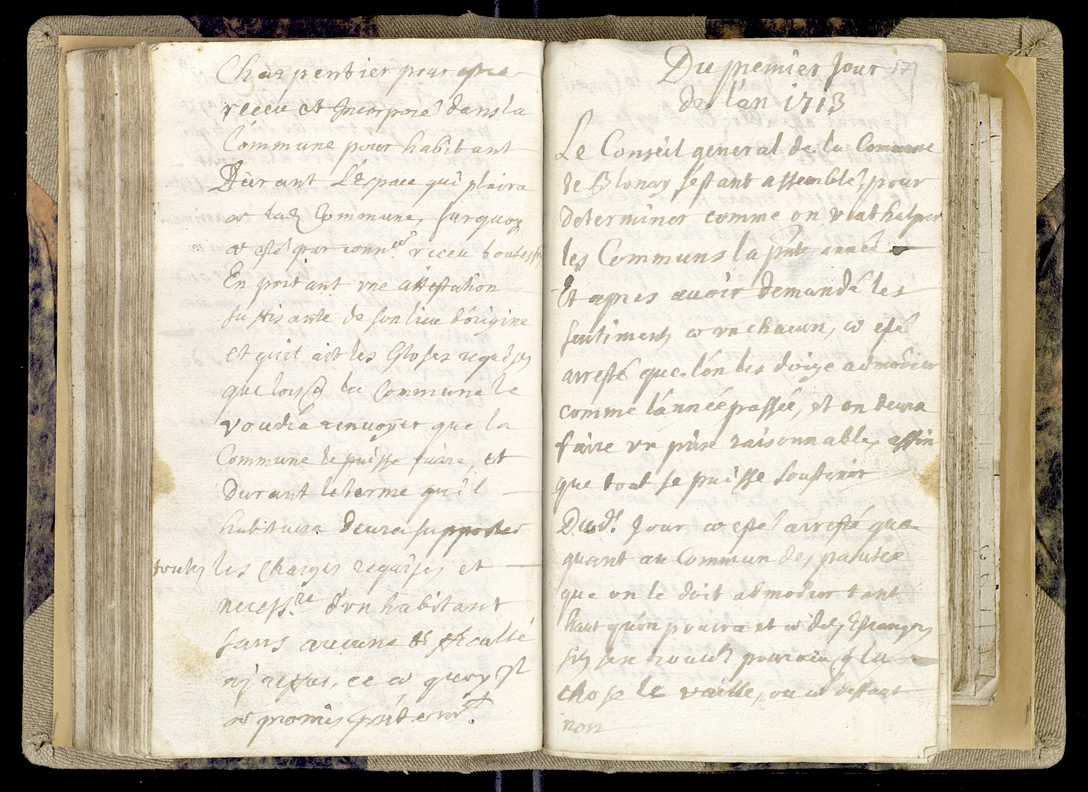 Charpentier pour estre
receu et Incorporé dans la
Commune pour habitant
Durant L'Espace qui plaira
a lad. Commune, Surquoy
a esté par conn.ce receu
En portant vne attestation
sufisante de son lieu d'origine
et qu'il ait les Closes requises
que lors la Commune le
voudra renvoyer que la
Commune le puisse faire, et
Durant le terme qu'il
habitura devra supporter
toutes les Charges requises et
necess.re d'vn habitant
sans aucune difficulté
ny refus, ce a quoy Il
a promis
57
Du premier Jour
de l'an 1713
Le Conseil general de la Commune
de Blonay s'estant assemblé, pour
determiner comme on
les Communs la pnte année
Et apres avoir demandé les
sentiments a vn chacun, a esté
arresté que l'on les doige admodier
comme l'année passée, et on devra
faire vn prise raisonnable, affin
que tout se puisse soustenir
Dud. Jour a esté arresté que
quant au Commun des
que on le doit admodier tant
haut qu'on pourra et a des Estrangers
sils sen trouve pourveu q la
chose le vaille, ou a deffaut
non